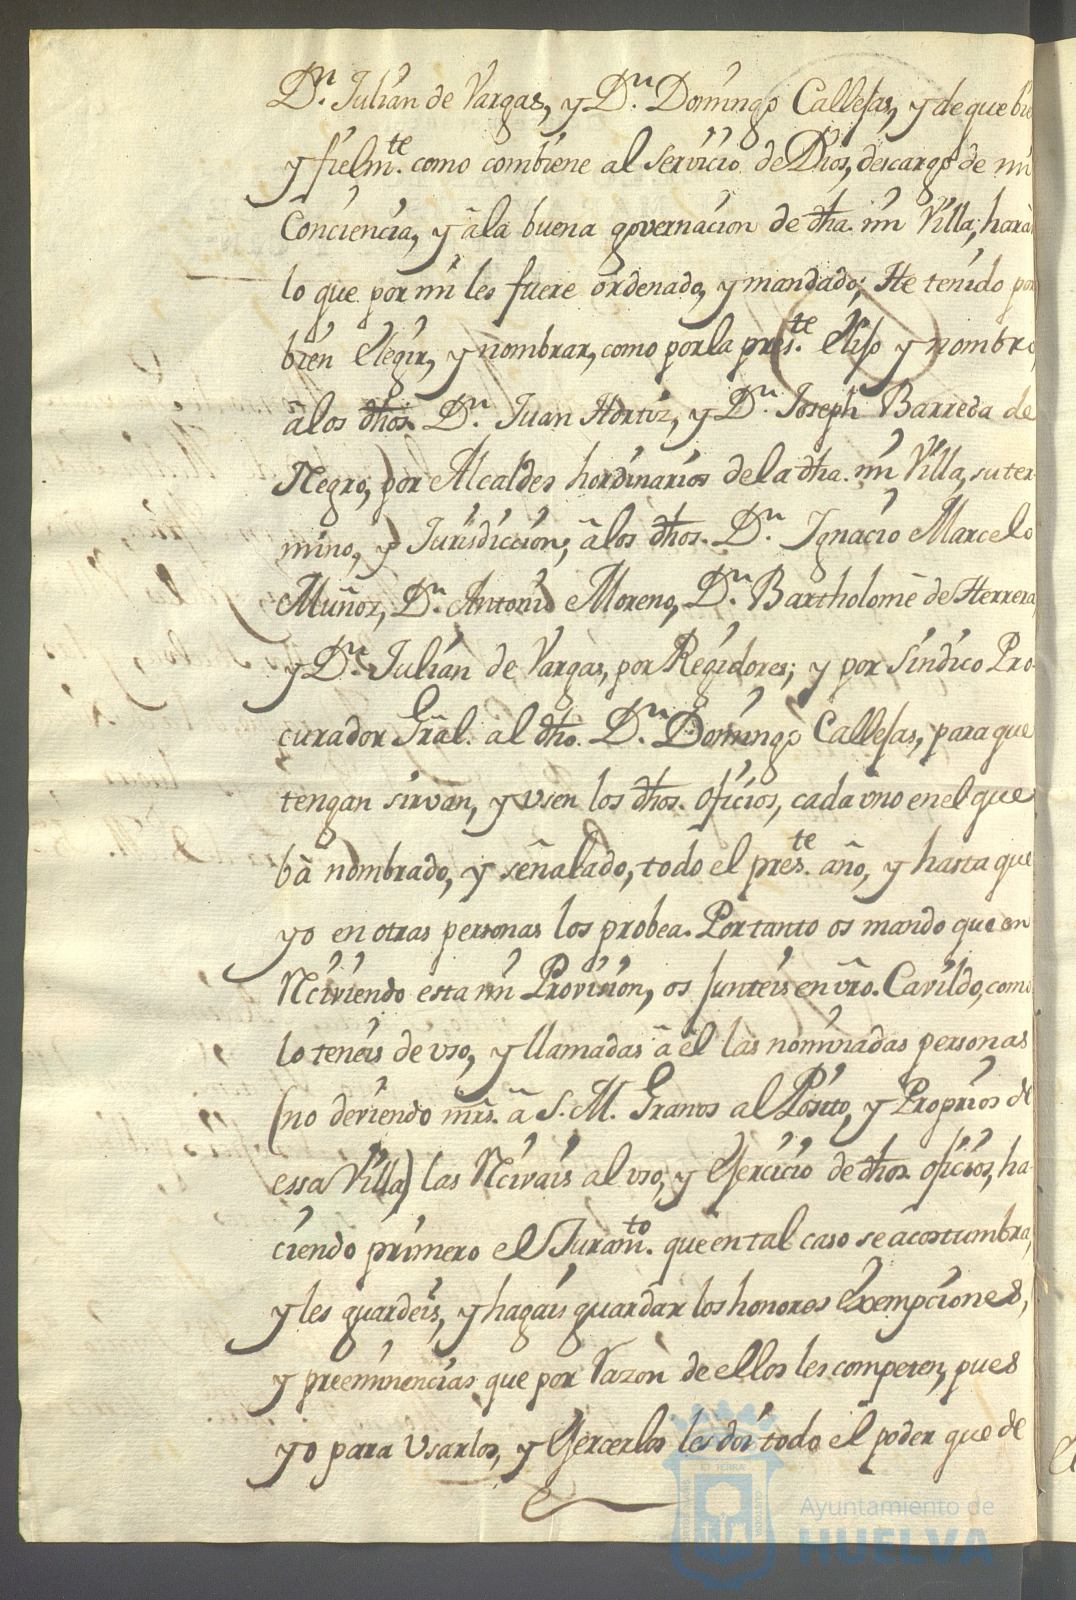 Dn. Julian de Vargas, y Dn. Domingo Callejas, y de que bie
y fielmte. como combiene al servicio de Dios, descargo de mi
Conciencia, y â la buena governacion de dha. mi Villa, harân
lo que por mi les fuere ordenado, y mandado; He tenido por
bien elegir, y nombrar, como por la preste. elijo y nombro
â los dhos. Dn. Juan Hortiz, y Dn. Joseph Barreda de
Negro, por Alcaldes hordinarios de la dha. mi Villa, su ter-
mino, y Jurisdiccion; â los dhos. Dn. Ignacio Marcelo
Muñoz, Dn. Antonio Moreno, Dn. Bartholomê de Herrera,
y Dn. Julian de Vargas, por Regidores; y por Sindico Pro-
curador Gral. al dho. Dn. Domingo Callejas, para que
tengan sirvan, y usen los dhos. oficios, cada uno en el que
bâ nombrado, y señalado, todo el preste. año, y hasta que
yo en otras personas los probea. Por tanto os mando que en
Reciviendo esta mi Provision, os junteis en vro. Cavildo, como
lo teneis de uso, y llamadas â êl las nominadas personas
(no deviendo mrs. â S. M. Granos al Posito, y Proprios de
essa Villa) las Recivais al uso, y ejercicio de dhos. oficios, ha-
ciendo primero el Juramto. que en tal caso se acostumbra,
y les guardeis, y hagais guardar los honores Exempciones,
y preeminencias que por razon de ellos les competen, pues
yo para usarlos, y Ejercerlos les doi todo el poder que de
Ayuntamiento de
HUELVA